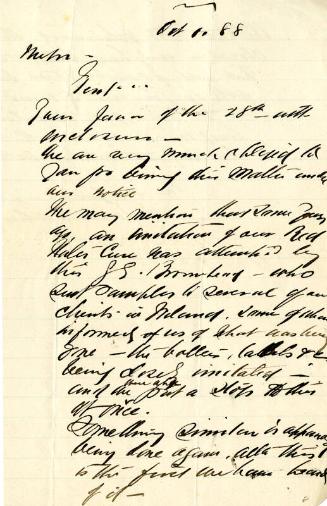 Oct 1. 88
Gents
Your favor of the 28th with
enclosure —
We are very much obliged to
you for bring this Matter under
our notice
We may mention that some years
ago an imitation of our Red
was attempted by
this J. E. — who
sent samples to several of our
clients in Ireland, some of whom
informed of us of what was being
done — the bottles, labels &c
being closely imitated —
and we put a stop to this
at once.
Something similar is apparently
being done again, altho this is
to the first we have heard
of it —